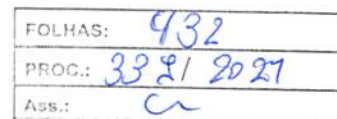 FOLHAS: 932
PROC.: 332/ 2021
Ass.: